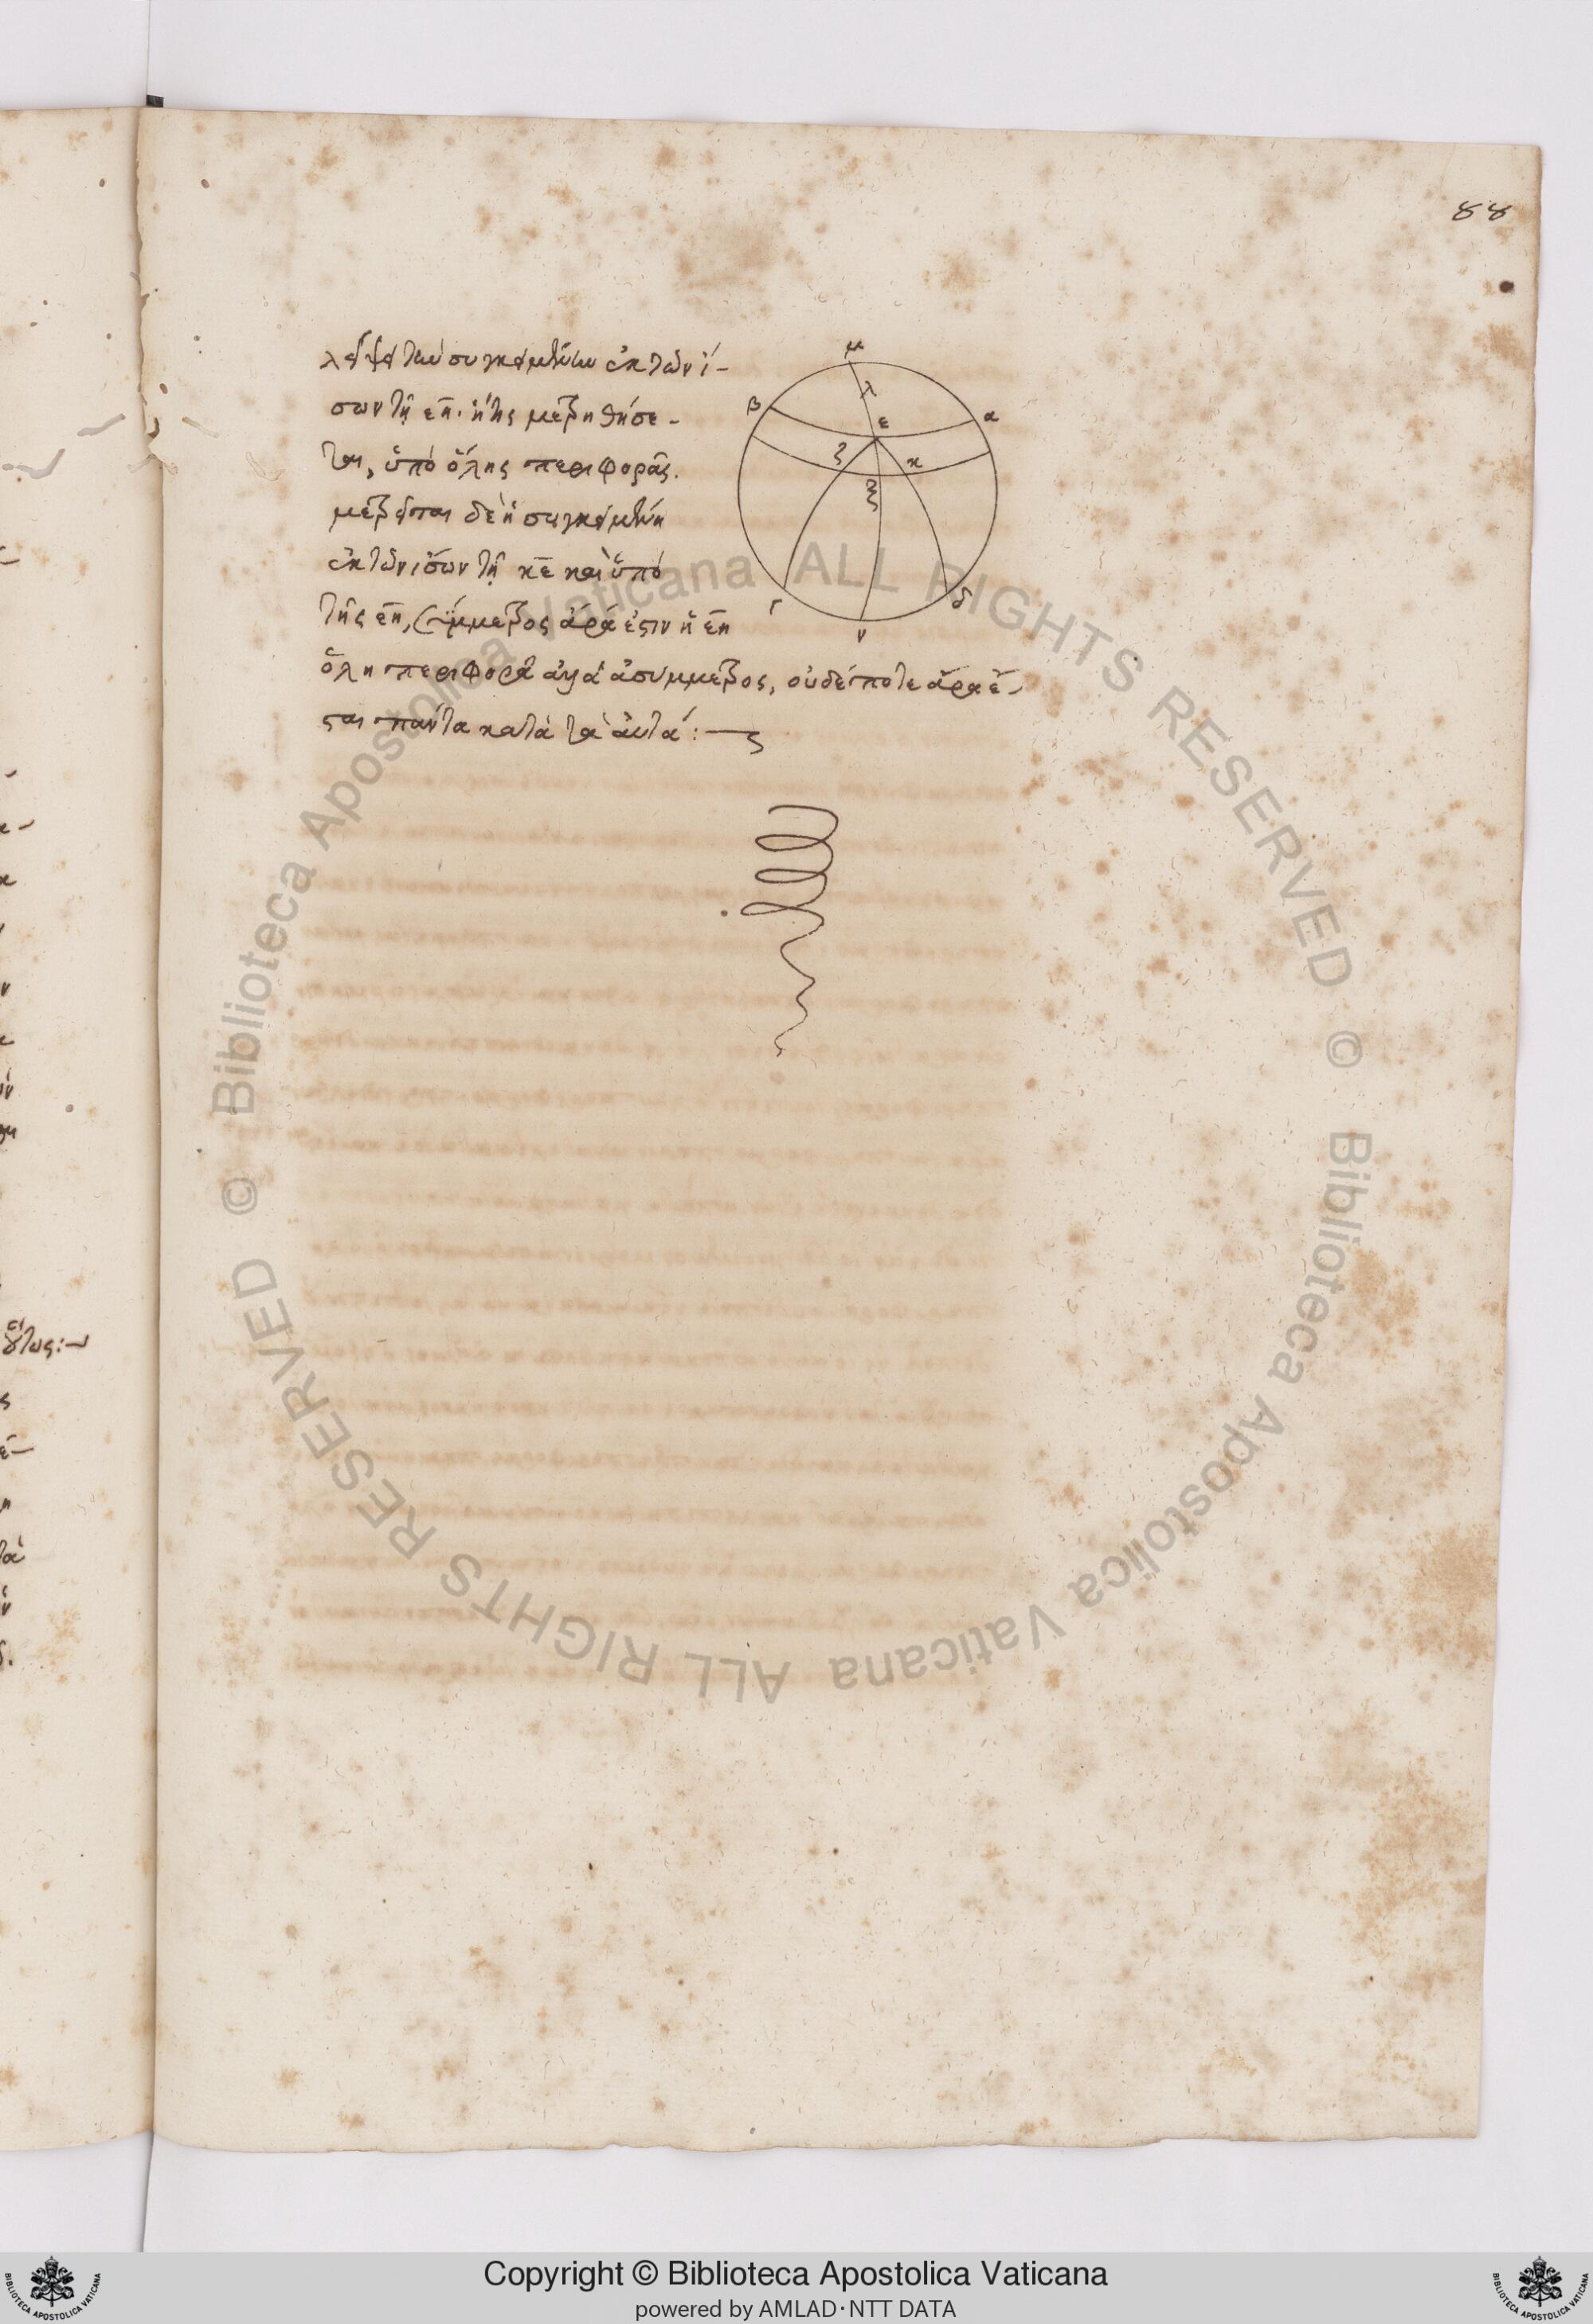 88
λείψει τὴν συγκειμένην ἐκ τῶν ἴ-
σων τῇ εη. ἥτις μετρηθήσε-
ται, ὑπὸ ὅλης περιφορᾶς.
μετρεῖται δὲ ἡ συγκειμένη
ἐκ τῶν ἴσων τῇ κε καὶ ὑπὸ
τῆς εη, σύμμετρος ἄρα ἐστιν ἡ εη
ὅλη περιφορᾷ ἀλλὰ ἀσύμμετρος, οὐδέποτε ἄρα ἔ-
σται πάντα κατὰ τὰ αὐτά :
μ
λ
β
ε
α
ζ
κ
ξ
γ
δ
ν
© Biblioteca Apostolica Vaticana ALL RIGHTS RESERVED © Biblioteca Apostolica Vaticana ALL RIGHTS RESERVED
Copyright © Biblioteca Apostolica Vaticana
powered by AMLAD·NTT DATA
BIBLIOTECA APOSTOLICA VATICANA
BIBLIOTECA APOSTOLICA VATICANA